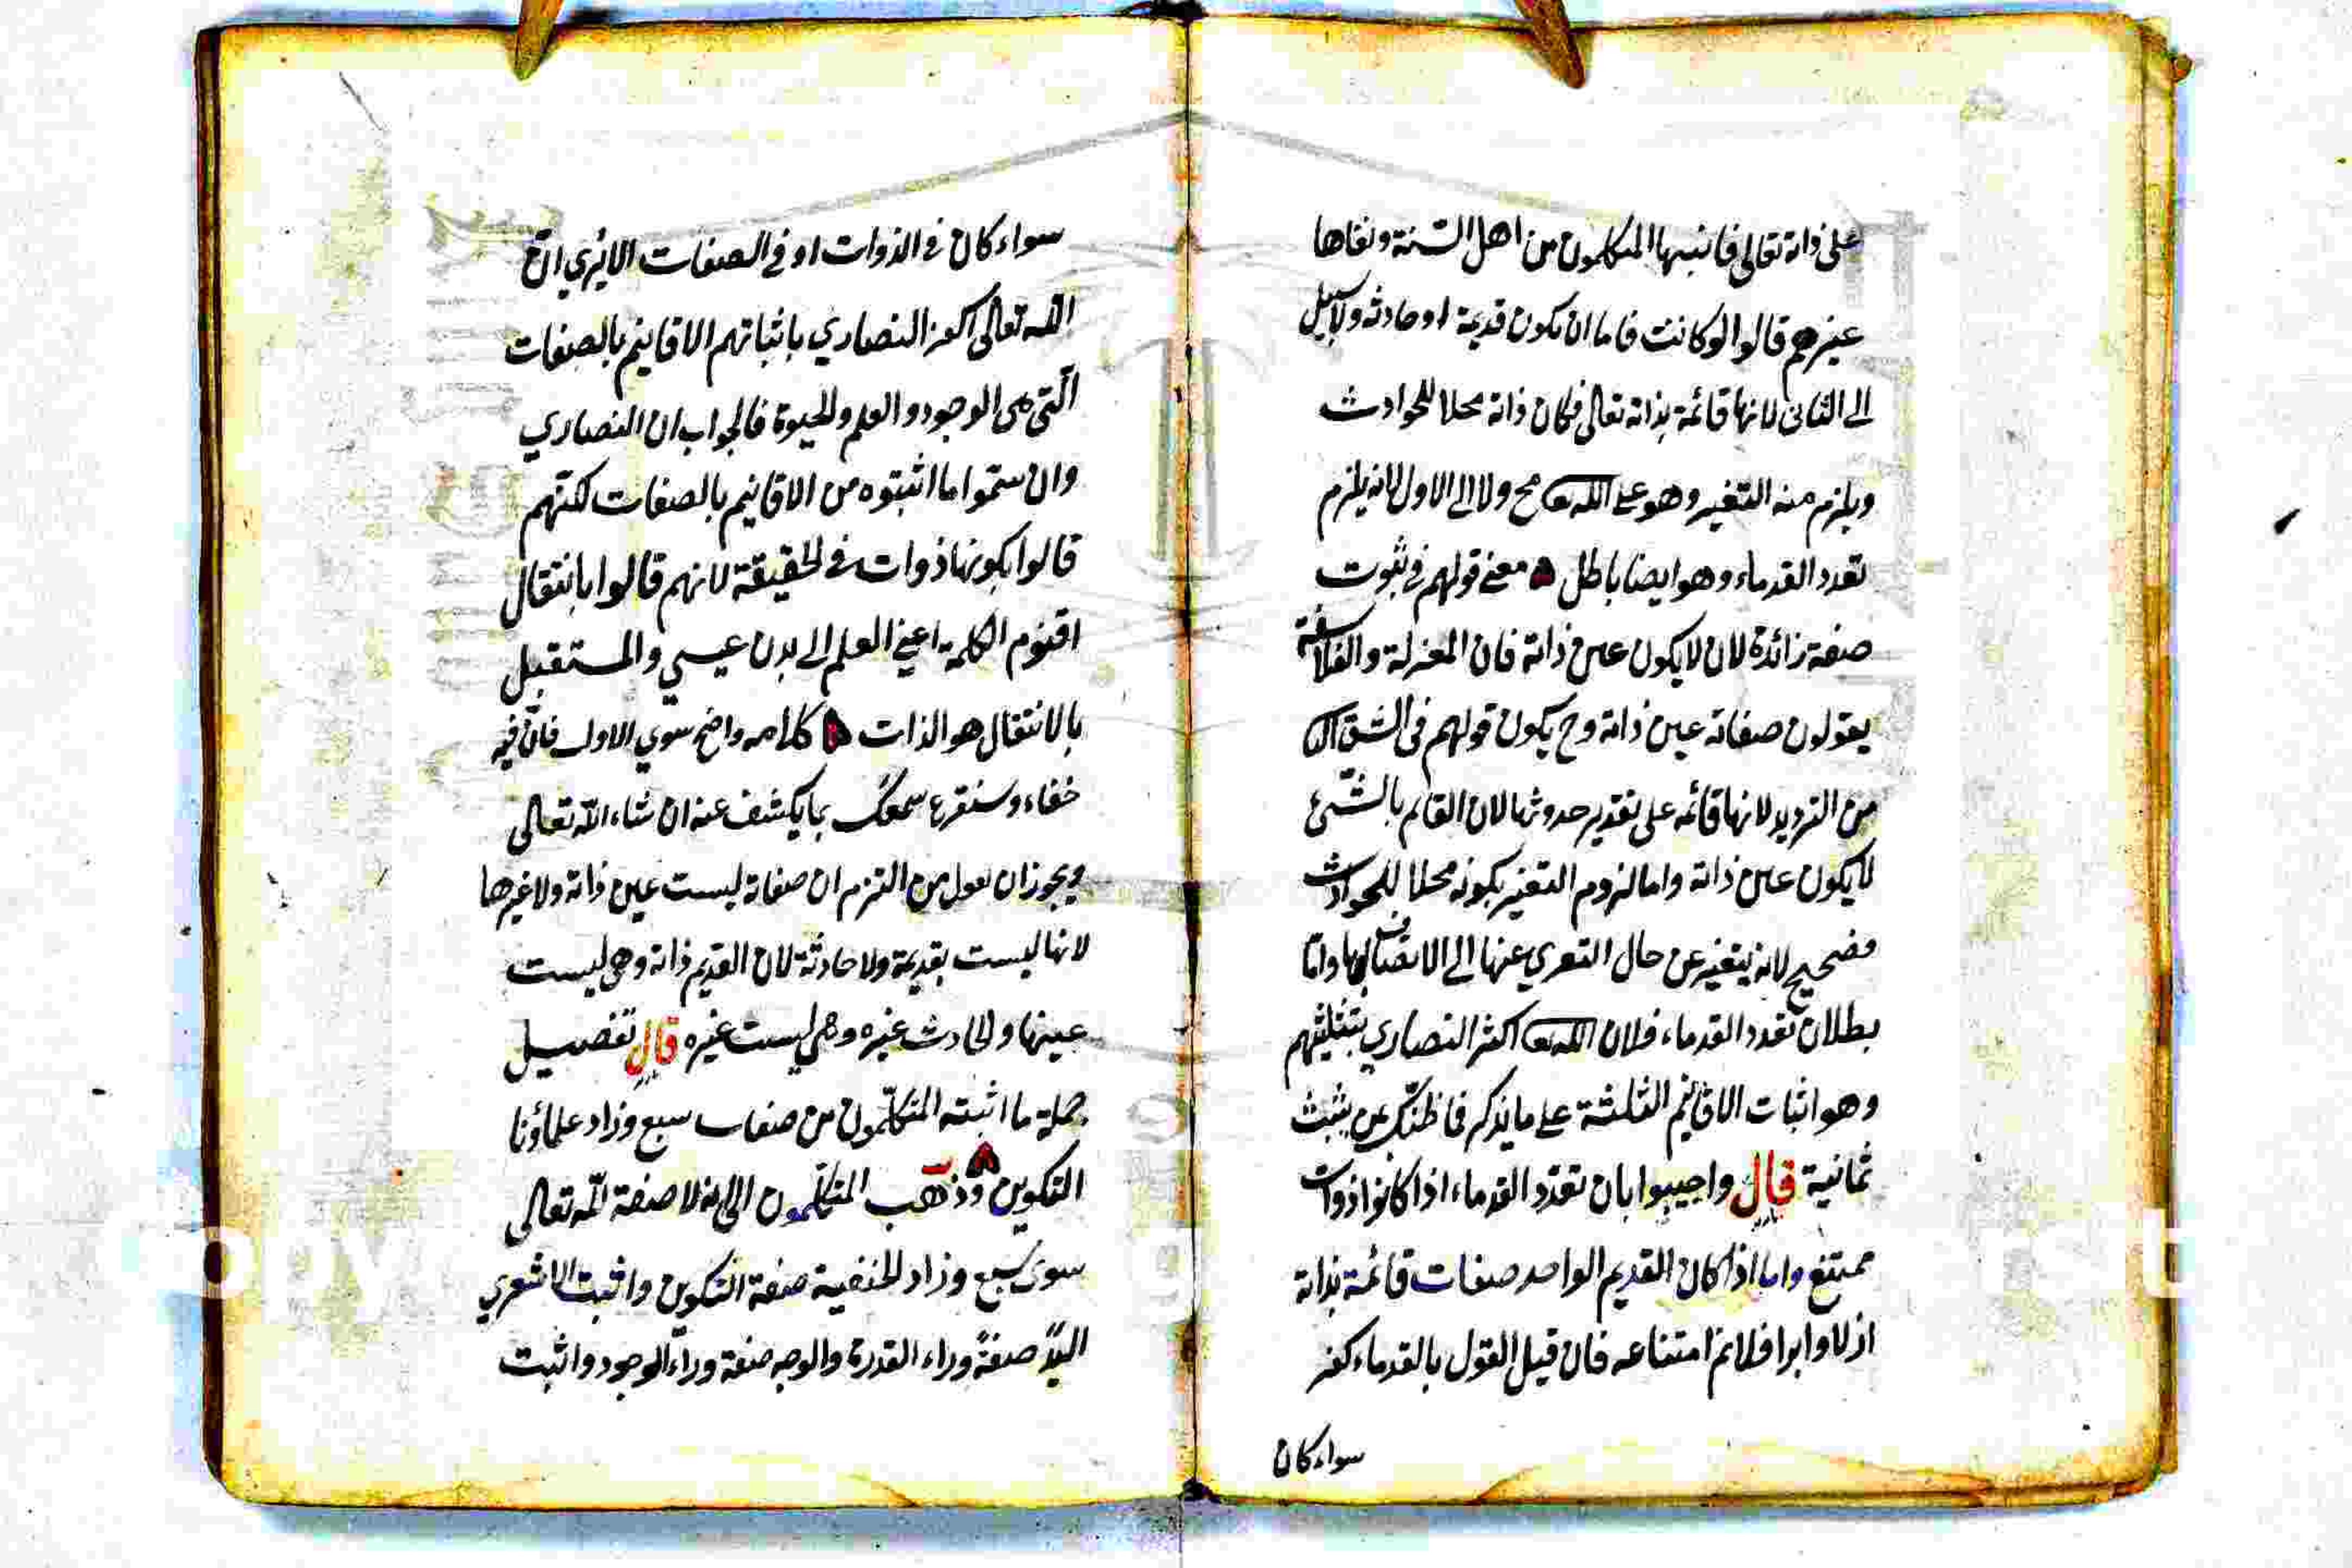 على ذاته تعالى فاثبتها المتكلمون من اهل السنة ونفاها
غيرهم قالوا لو كانت فاما ان يكون قديمة او حادثة ولا سبيل
الى الثانى لانها قائمة بذاته تعالى فكان ذاته محلا للحوادث
ويلزم منه التغير وهو على الله تعا مح ولا الى الاول لانه يلزم
تعدد القدماء وهو ايضا باطل معنى قولهم فى ثبوت
صفة زائدة لان لا يكون عين ذاته فان المعتزلة والفلاسفة
يقولون صفاته عين ذاته وح يكون قولهم فى الشق
من الترديد لانها قائمه على تقدير حدوثها لان القائم بالشئ
لا يكون عين ذاته واما لزوم التغير بكونه محلا للحوادث
فصحيح لانه يتغير عن حال التعري عنها الى الاتصاف بها واما
بطلان تعدد القدماء فلان الله تعا اكفر النصاري بتثليثهم
وهو اثبات الاقانيم الثلثة على ما يذكر فما ظنك بمن يثبت
ثمانية قال واجيبوا بان تعدد القدماء اذا كانوا ذوات
ممتنع واما اذا كان القديم الواحد صفات قائمة بذاته
ازلا وابدا فلانم امتناعه فان قيل القول بالقدماء كفر
سواء كان
سواء كان فى الذوات او فى الصفات الا يري ان
الله تعالى اكفر النصاري باثباتهم الاقانيم بالصفات
التى هى الوجود والعلم والحيوة فالجواب ان النصاري
وان سموا ما اثبتوه من الاقانيم بالصفات لكنهم
قالوا بكونها ذوات فى الحقيقة لانهم قالوا بانتقال
اقنوم الكلمة اعنى العلم الى بدن عيسي والمستقبل
بالانتقال هو الذات كلامه واضح سوي الاول فان فيه
خفاء وسنقرع سمعك بما يكشف عنه ان شاء الله تعالى
ويجوز ان يقول من التزم ان صفاته ليست عين ذاته ولا غيرها
لانها ليست بقديمة ولا حادثة لان القديم ذاته وهى ليست
عينها والحادث غيره وهى ليست غيره قال تفصيل
جملة ما اثبته المتكلمون من صفات سبع وزاد علماؤنا
التكوين وذهب المتكلمون الى انه لا صفة لله تعالى
سوى سبع وزاد الحنفية صفة التكوين واثبت الاشعري
اليد صفة وراء القدرة والوجه صفة وراء الوجود واثبت